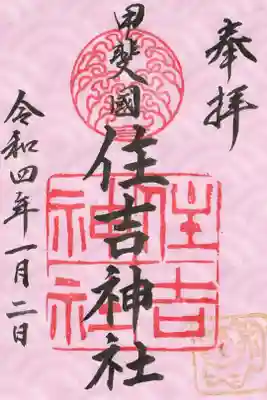 奉拝
甲斐國
住吉神社
住吉
神社
令和四年一月二日